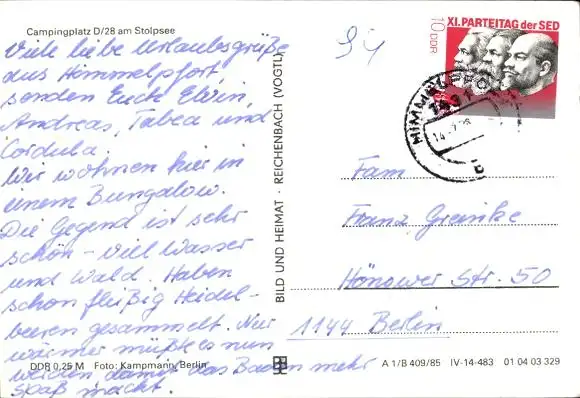 Campingplatz D/28 am Stolpsee
Viele liebe Urlaubsgrüße
aus Himmelpfort,
senden Euch Elvin,
Andreas, Tabea und
Cordula.
Wir wohnen hier in
einem Bungalow.
Die Gegend ist sehr
schön - viel Wasser
und Wald. Haben
schon fleißig Heidel-
beeren gesammelt. Nur
wärmer müßte es nun
werden damit das Baden mehr
Spaß macht.
DDR 0,25 M Foto: Kampmann, Berlin
BILD UND HEIMAT · REICHENBACH (VOGTL)
XI. PARTEITAG der SED
10 DDR
HIMMELPFORT
Fam
Franz Greinke
Hönower Str. 50
1144 Berlin
A 1/B 409/85 IV-14-483 01 04 03 329